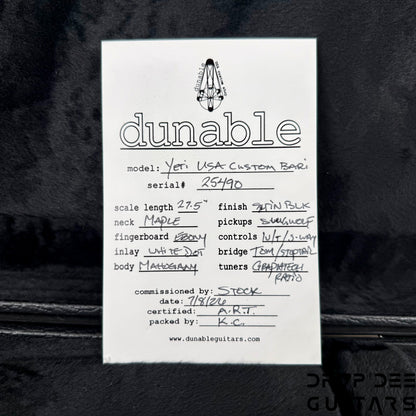 dunable
dunable
model: Yeti USA Custom Bari
serial# 25490
scale length 27.5" finish Satin Blk
neck Maple pickups Swingwolf
fingerboard Ebony controls V/T/3-way
inlay White Dot bridge Tom/Stoptail
body Mahogany tuners Graphtech Ratio
commissioned by: Stock
date: 7/8/26
certified: A.R.T.
packed by: K.C.
www.dunableguitars.com
DROP DEE
GUITARS